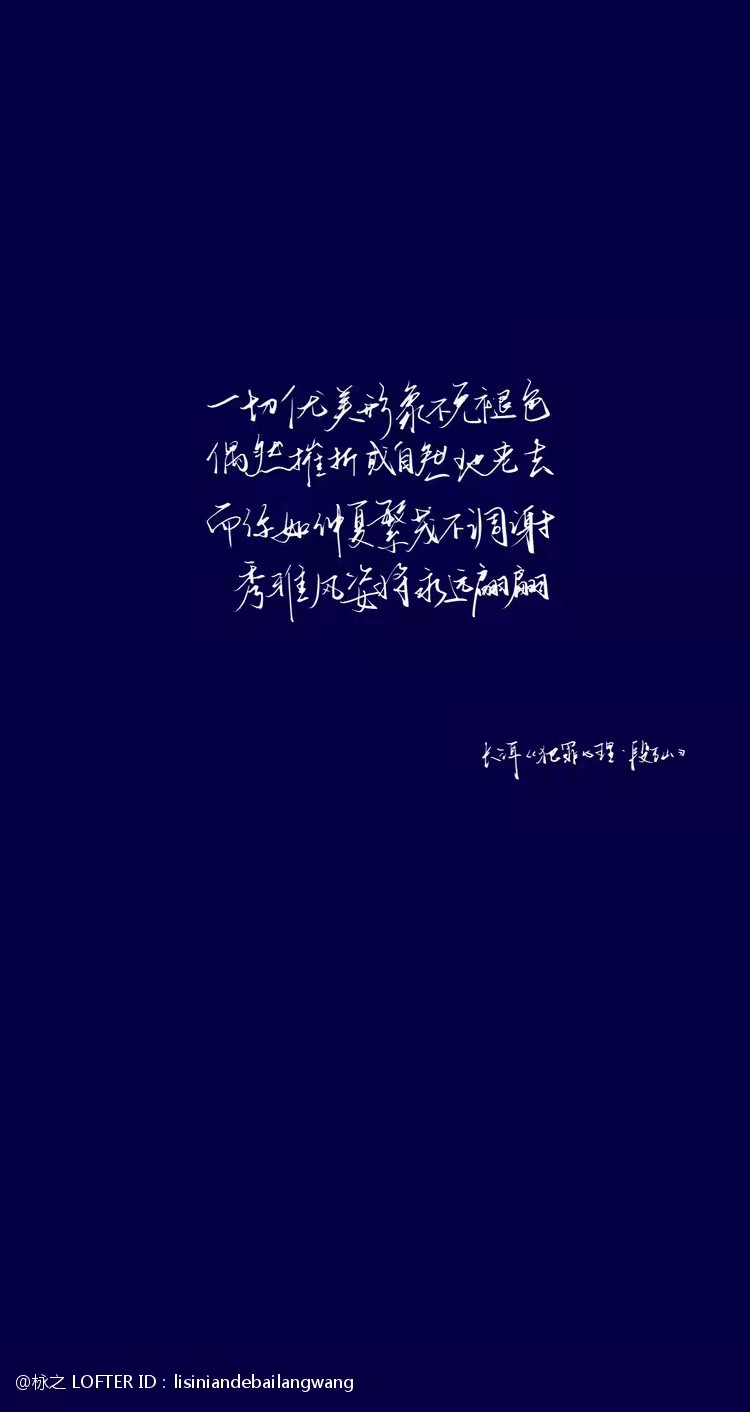 一切优美形象不免褪色
偶然摧折或自然地老去
而你如仲夏繁茂不调谢
秀雅风姿将永远翩翩
长洱《犯罪心理·段万山》
@栐之 LOFTER ID：lisiniandebailangwang